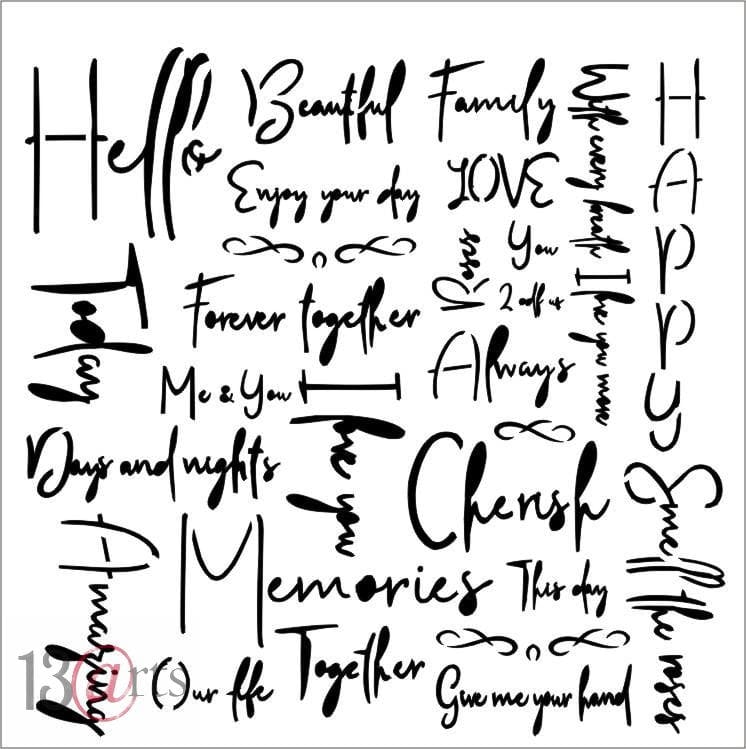 Hello
Beautiful
Family
With every breath I you more
HAPPY
Enjoy your day
LOVE
You
Roses
2 of us
Today
Forever together
Always
Me & You
I you
Days and nights
Cherish
Smell the roses
Amazing
Memories
This day
Together
Our life
Give me your hand
13@rts